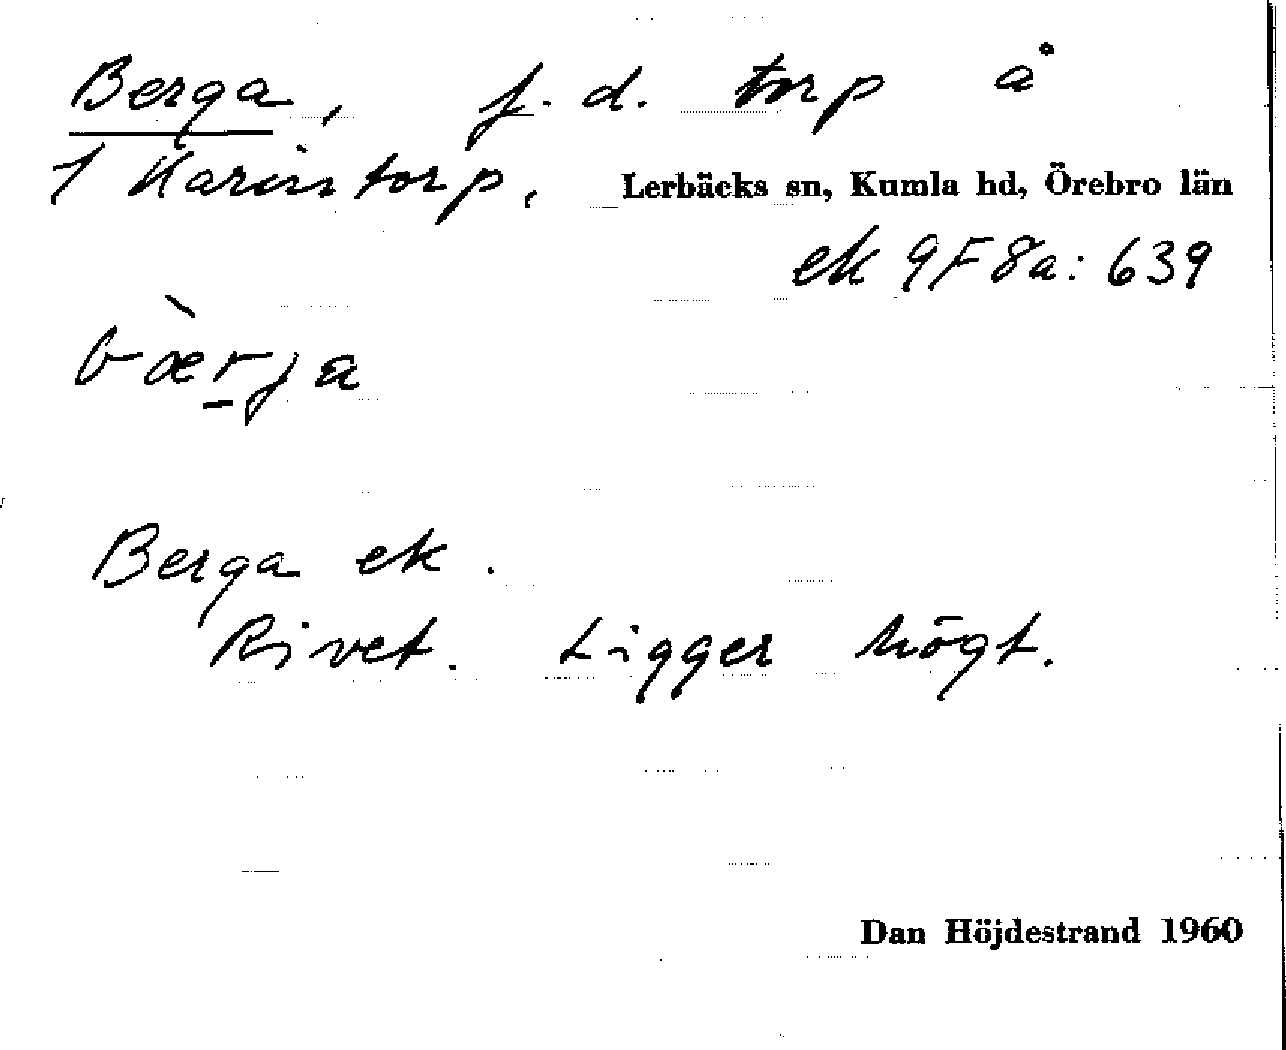 Berga, f. d. torp å
1 Karintorp, Lerbäcks sn, Kumla hd, Örebro län
ek 9F8a: 639
bæ̀r̲ja
Berga ek.
Rivet. Ligger högt.
Dan Höjdestrand 1960